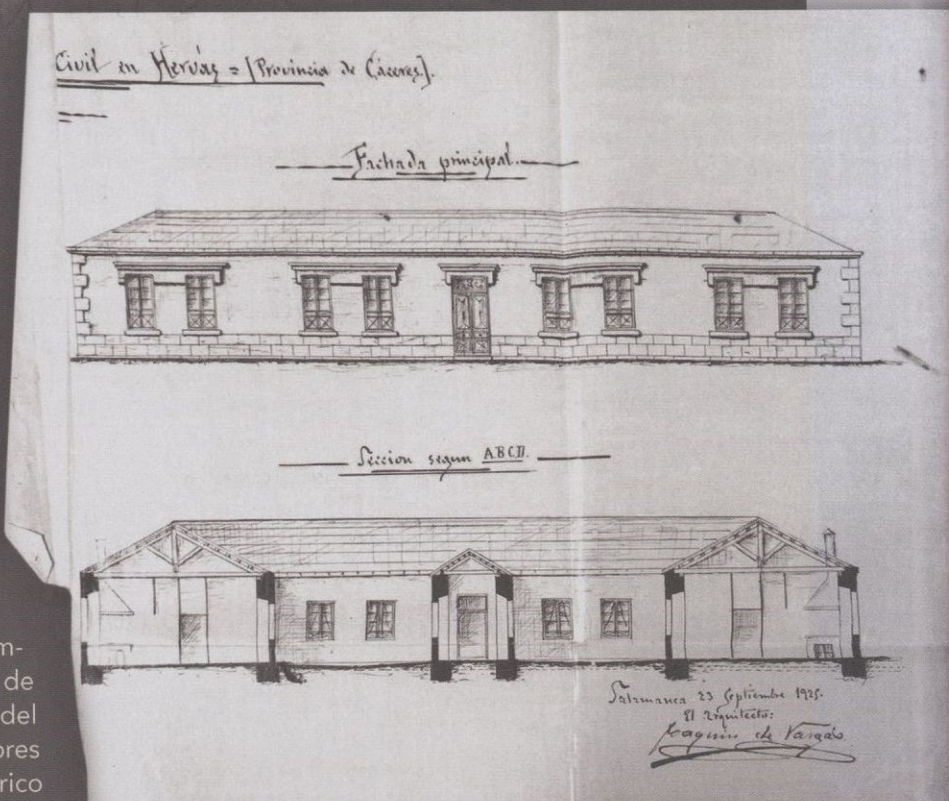 Civil en Hervás = [Provincia de Cáceres].
Fachada principal.
Sección segun A.B.C.D.
Salamanca 23 Septiembre 1925.
El Arquitecto:
Joaquin de Vargas
m-
de
del
ores
rico